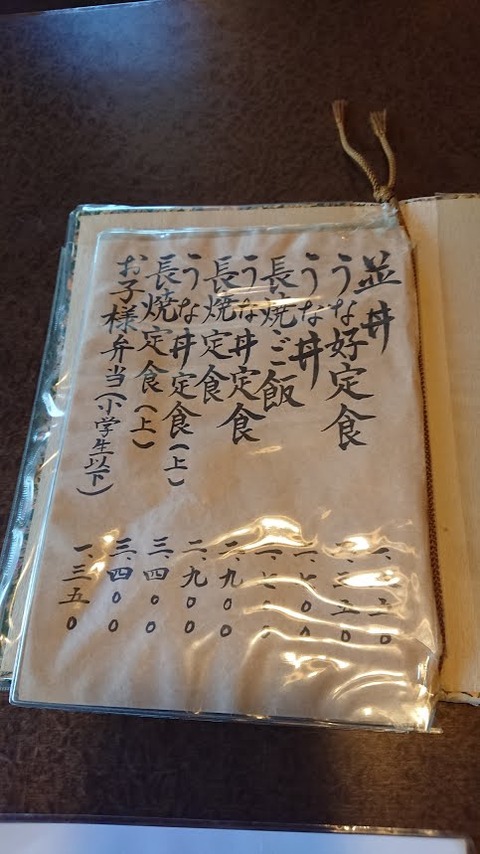 並丼
うな好定食
うな丼 一、七〇〇
長焼ご飯 一、七〇〇
うな丼定食 二、九〇〇
長焼定食 二、九〇〇
うな丼定食(上) 三、四〇〇
長焼定食(上) 三、四〇〇
お子様弁当(小学生以下) 一、三五〇